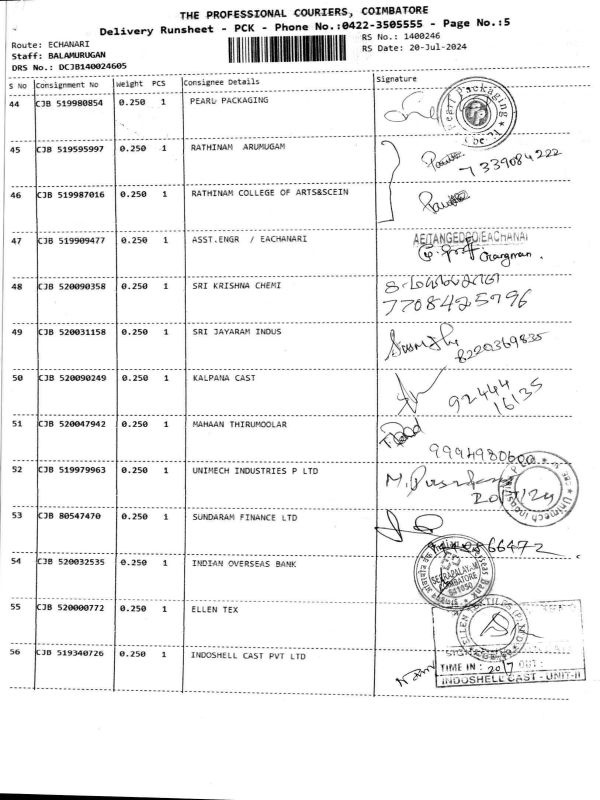 THE PROFESSIONAL COURIERS, COIMBATORE
Delivery Runsheet - PCK - Phone No.:0422-3505555 - Page No.:5
Route: ECHANARI
RS No.: 1400246
Staff: BALAMURUGAN
RS Date: 20-Jul-2024
DRS No.: DCJB140024605
S No Consignment No Weight PCS Consignee Details Signature
44 CJB 519980854 0.250 1 PEARL PACKAGING
Pearl Packaging
45 CJB 519595997 0.250 1 RATHINAM ARUMUGAM
7339084222
46 CJB 519987016 0.250 1 RATHINAM COLLEGE OF ARTS&SCEIN
47 CJB 519909477 0.250 1 ASST.ENGR / EACHANARI
AE/TANGEDCO/EACHANAI
48 CJB 520090358 0.250 1 SRI KRISHNA CHEMI
7708425796
49 CJB 520031158 0.250 1 SRI JAYARAM INDUS
8220369835
50 CJB 520090249 0.250 1 KALPANA CAST
92444
16135
51 CJB 520047942 0.250 1 MAHAAN THIRUMOOLAR
52 CJB 519979963 0.250 1 UNIMECH INDUSTRIES P LTD
20/7/24
53 CJB 80547470 0.250 1 SUNDARAM FINANCE LTD
66472
54 CJB 520032535 0.250 1 INDIAN OVERSEAS BANK
COIMBATORE
55 CJB 520000772 0.250 1 ELLEN TEX
56 CJB 519340726 0.250 1 INDOSHELL CAST PVT LTD
TIME IN : 20/7 OUT :
INDOSHELL CAST - UNIT-II